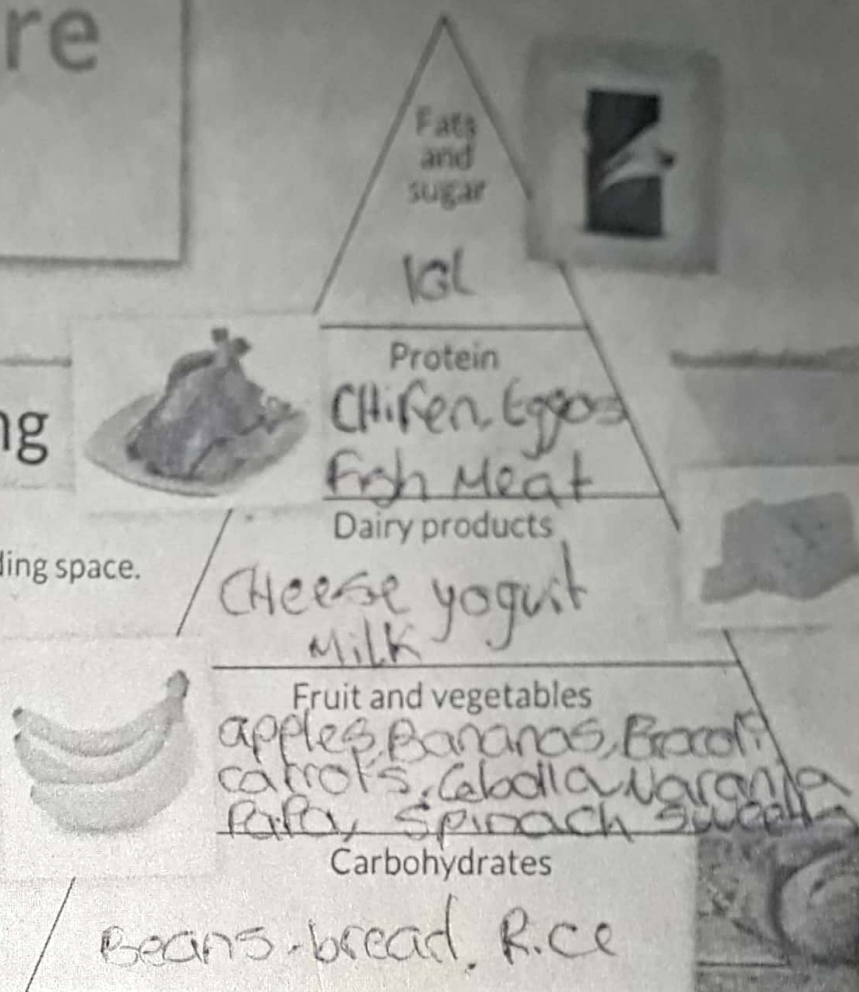 re
Fats
and
sugar
Protein
CHifen, Eggos
Fish Meat
ng
Dairy products
ding space.
CHeese yogurt
Milk
Fruit and vegetables
apples, Bananas, Brocoli
carrots, Cebolla Naranja
PaPa, Spinach sweet
Carbohydrates
Beans. bread. Rice